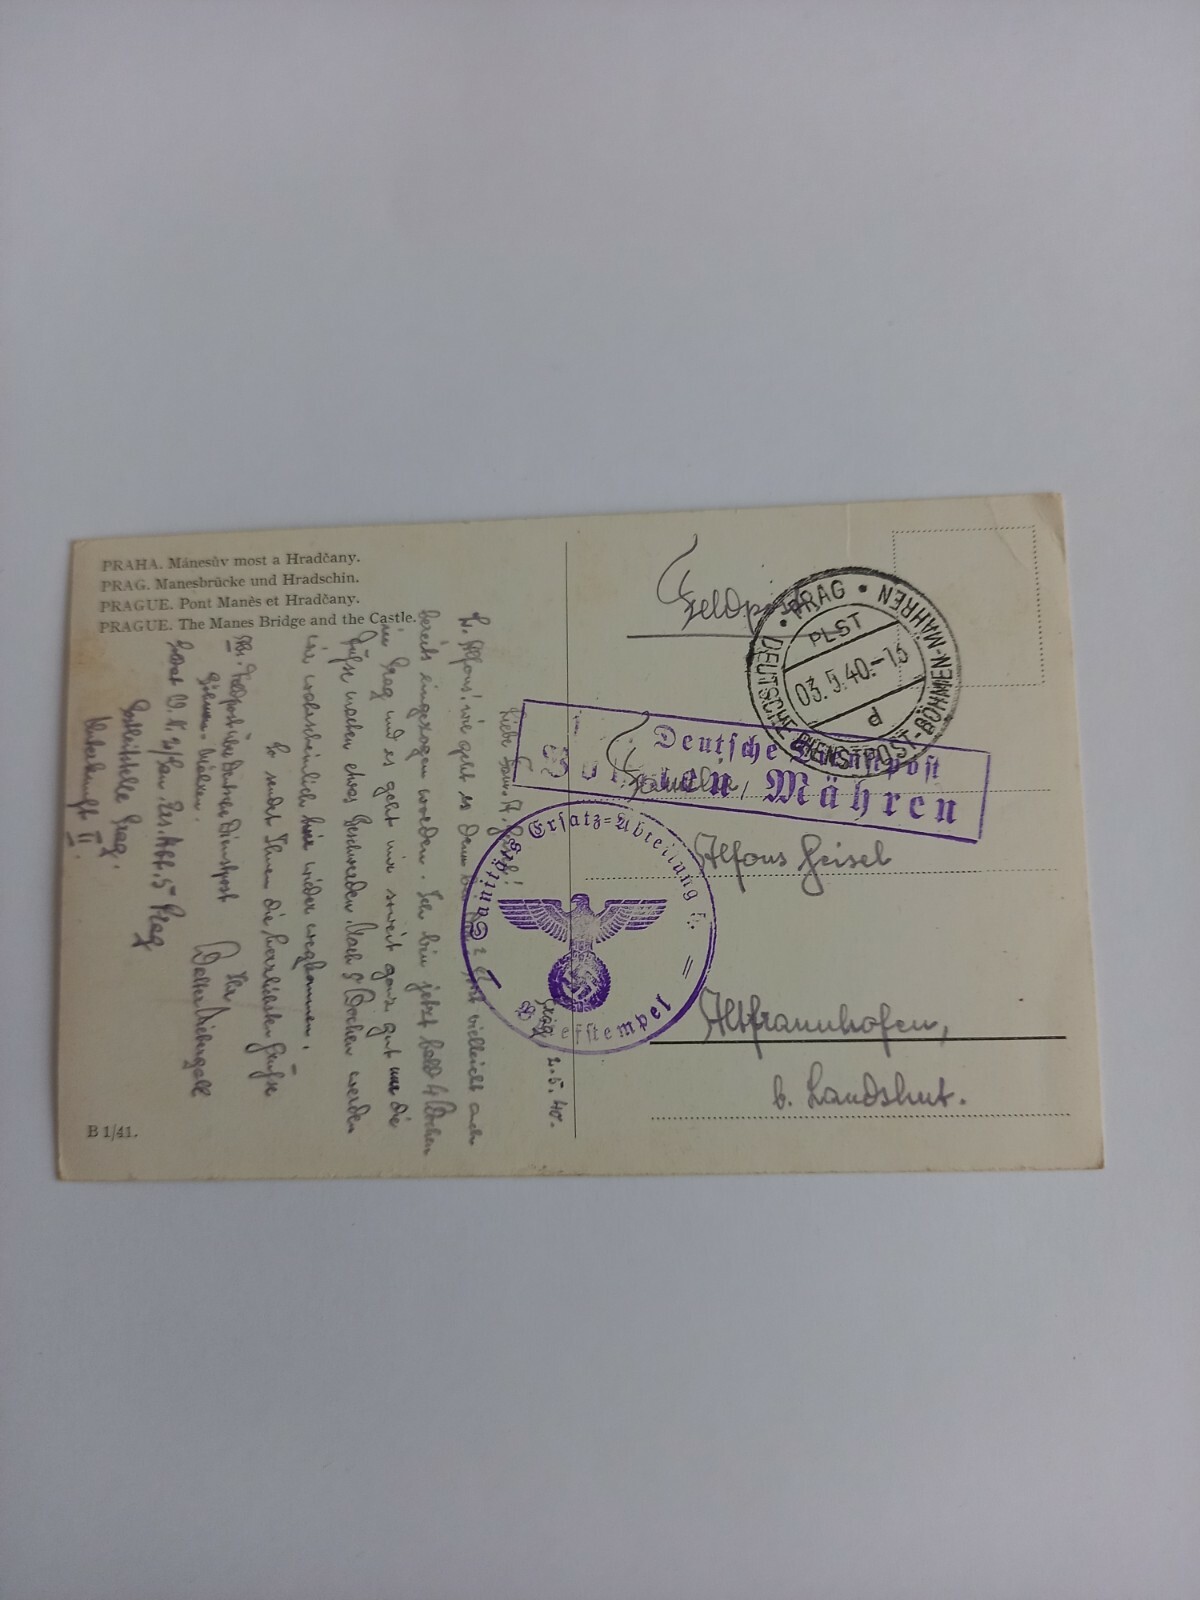 PRAHA. Mánesův most a Hradčany.
PRAG. Manesbrücke und Hradschin.
PRAGUE. Pont Manès et Hradčany.
PRAGUE. The Manes Bridge and the Castle.
Prag 2.5.40.
Liebe Fam. A.
L. Alfons! wie geht es Denn bei vielleicht auch
bereits eingezogen worden. Ich bin jetzt bald 4 Wochen
in Prag und es geht mir soweit ganz gut nur die
Füße machen etwas Beschwerden. Nach 8 Wochen werden
wir wahrscheinlich hier wieder wegkommen.
So sendet Ihnen die herzlichsten Grüße
Ihr
Walter
Feldpost über Deutsche Dienstpost
Böhmen-Mähren.
Soldat W. N. 2/San. Abt. 5 Prag
Postleitstelle Prag.
Unterkunft II.
B 1/41.
Feldpost
PRAG • DEUTSCHE DIENSTPOST-BÖHMEN-MÄHREN •
PLST
03.5.40.-13
d
Deutsche Dienstpost
Böhmen Mähren
Familie,
Alfons Geisel
Altfraunhofen,
b. Landshut.
Sanitäts Ersatz-Abteilung 5.
Briefstempel